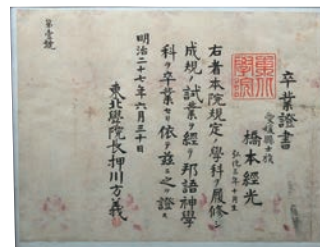 第壹號
卒業證書
愛媛縣士族
橋本經光
弘化三年十月生
右者本院規定ノ學科ヲ履修シ
成規ノ試業ヲ經テ邦語神學
科ヲ卒業セリ依テ茲ニ之ヲ證ス
明治二十七年六月三十日
東北學院長押川方義
東北學院